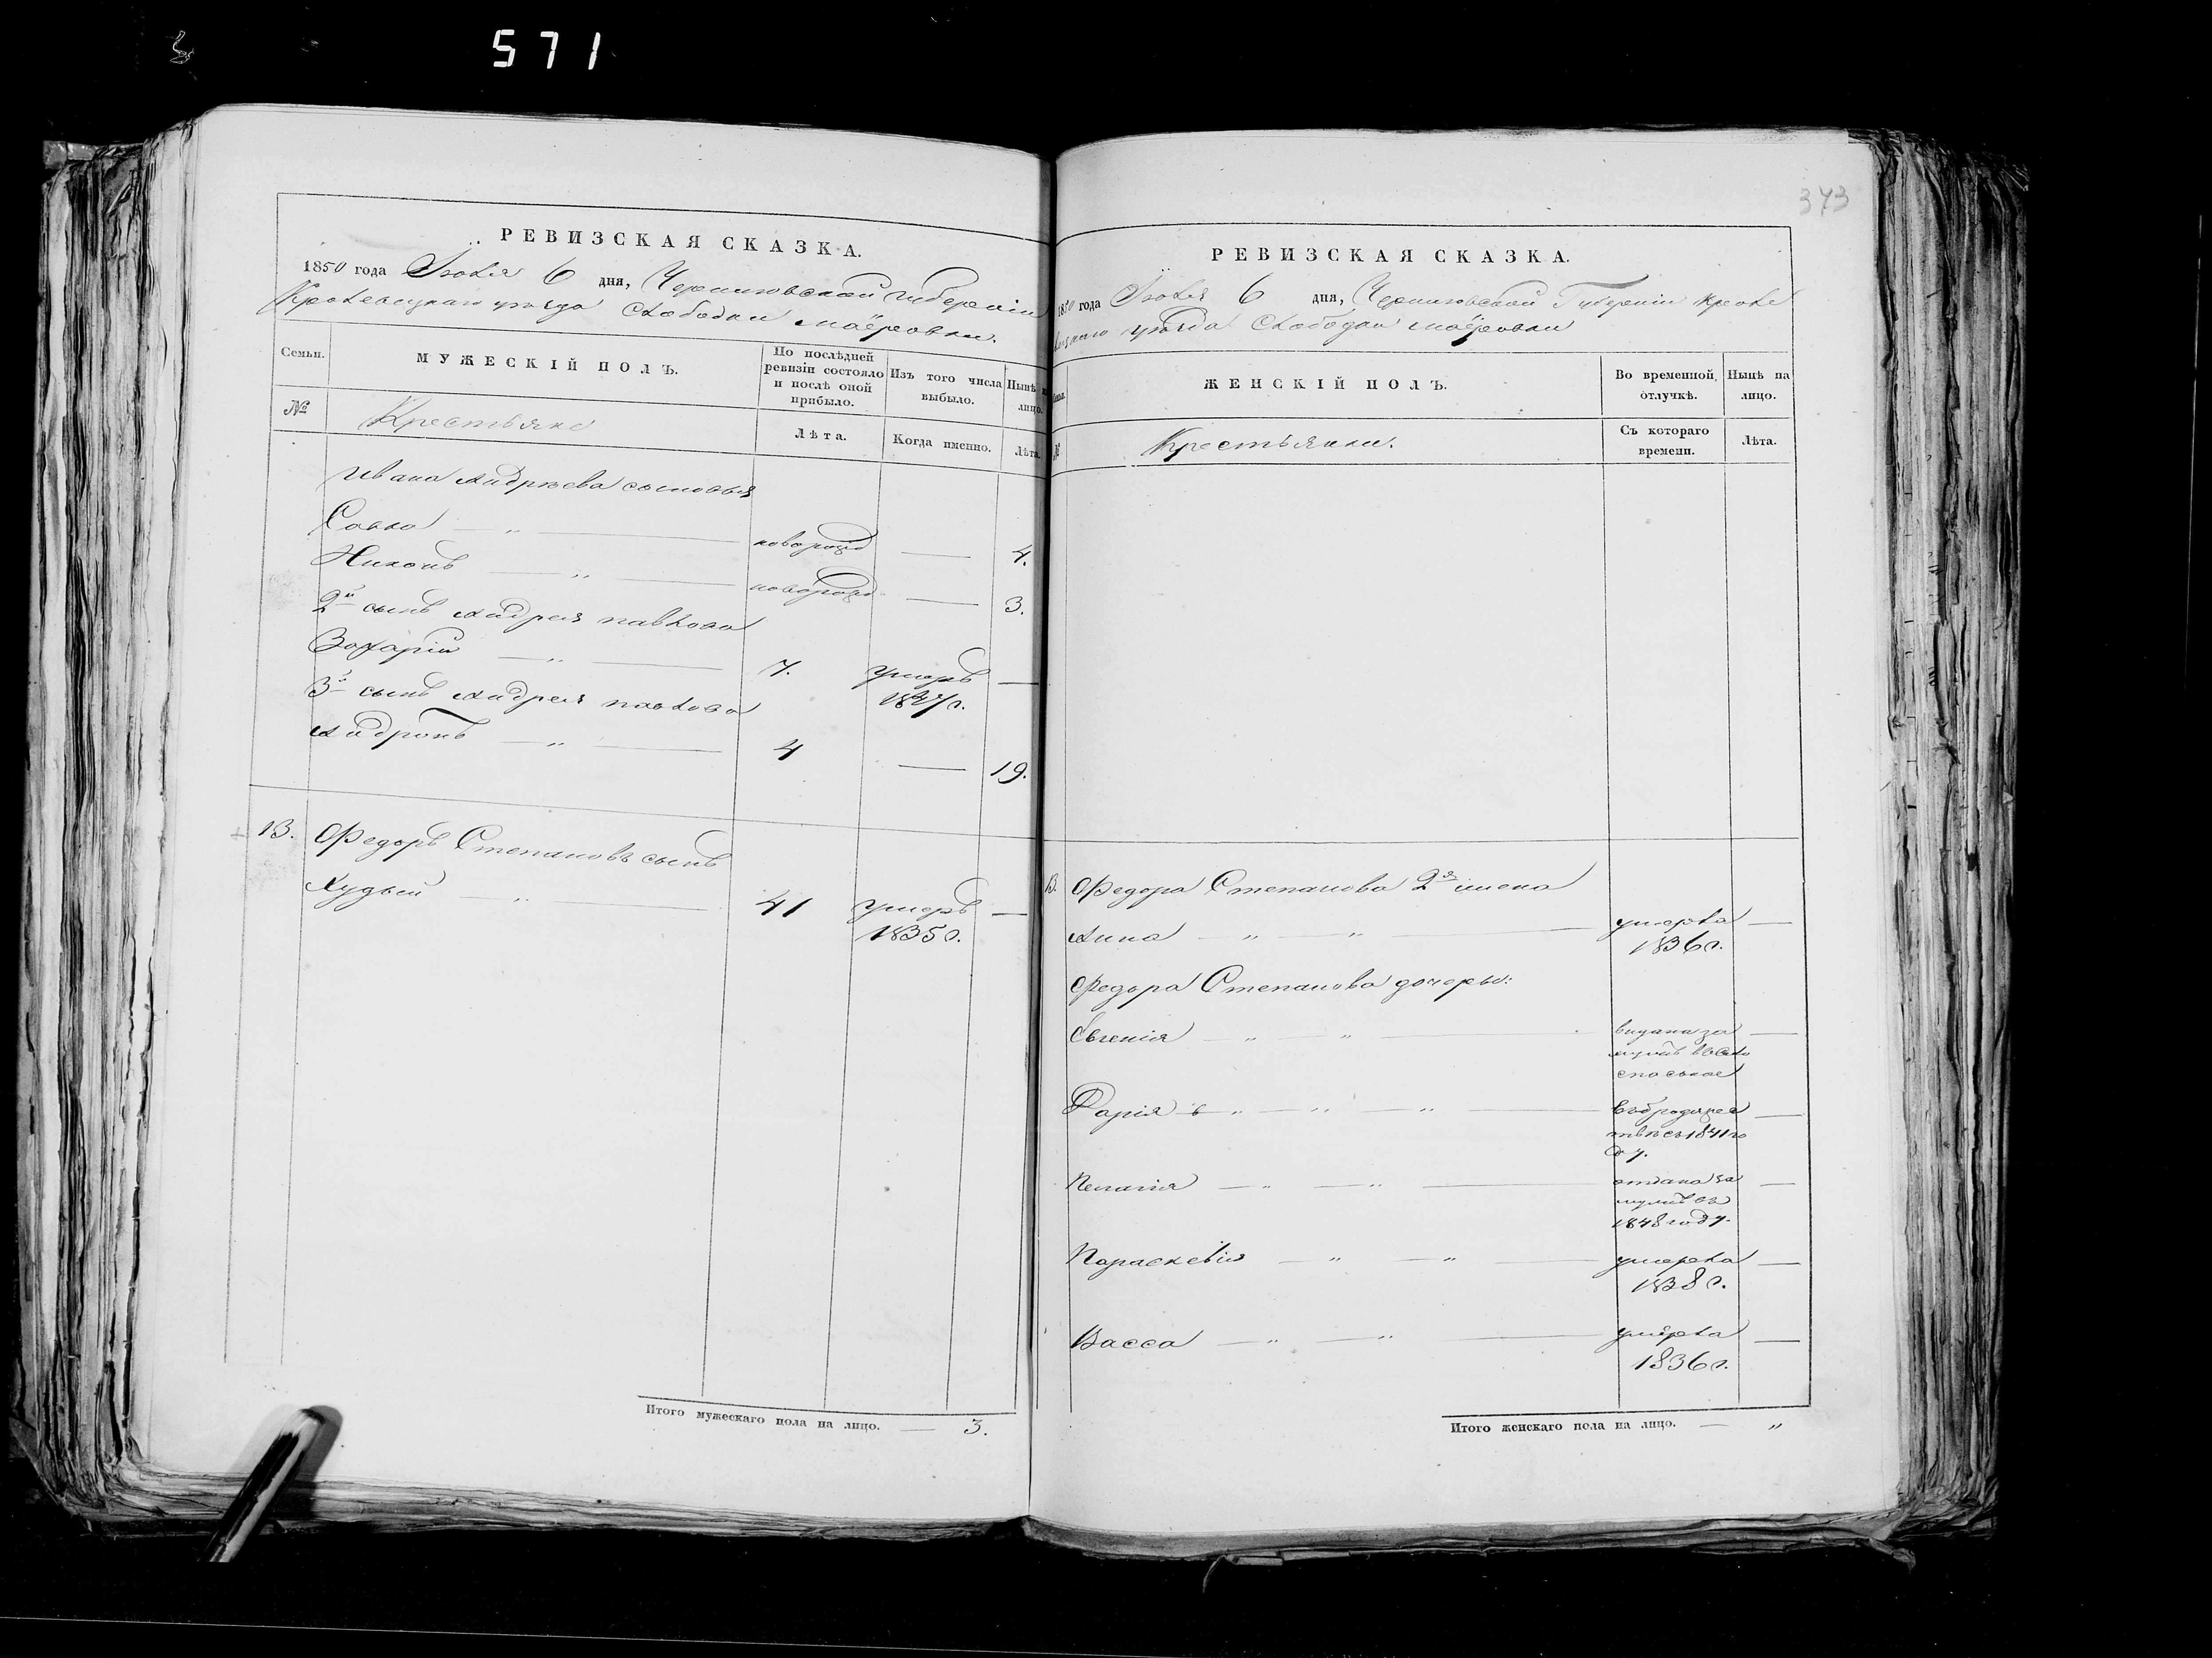 571
РЕВИЗСКАЯ СКАЗКА.
1850 года Июля 6 дня, Черниговской губерніи
Кролевецкаго уѣзда слободки маёровки.
Семьи.
МУЖЕСКІЙ ПОЛЪ.
По послѣдней ревизіи состояло и послѣ оной прибыло.
Изъ того числа выбыло.
Нынѣ на лицо.
№
Крестьяне
Лѣта.
Когда именно.
Лѣта.
Ивана Андрѣева сыновья
Савка — „ — новорожд — 4.
Никонъ — „ — новорожд — 3.
2й сынъ Андрея павлова
Захарій — „ — 7. умеръ —
1847 г.
3й сынъ Андрея павлова
Андронъ — „ — 4 — 19.
13. Федоръ Степановъ сынъ
Худый — „ — 41 умеръ —
1835 г.
Итого мужескаго пола на лицо. — 3.
373
РЕВИЗСКАЯ СКАЗКА.
1850 года Июля 6 дня, Черниговской Губерніи Кроле
вецкаго уѣзда слободки маёровки
ЖЕНСКІЙ ПОЛЪ.
Во временной отлучкѣ.
Нынѣ на лицо.
№
Крестьянки.
Съ котораго времени.
Лѣта.
13. Федора Степанова 2я жена
Анна — „ — „ — умерла —
1836 г.
Федора Степанова дочеры:
Евгенія — „ — „ — видана за —
мужъ
Дарія — „ — „ — „ — въ бродяжес —
твѣ съ 1841 го
ду.
Пелагія — „ — „ — отдана за —
мужъ въ
1848 году.
Параскевія — „ — „ — умерла —
1838 г.
Васса — „ — „ — умерла —
1836 г.
Итого женскаго пола на лицо. — „